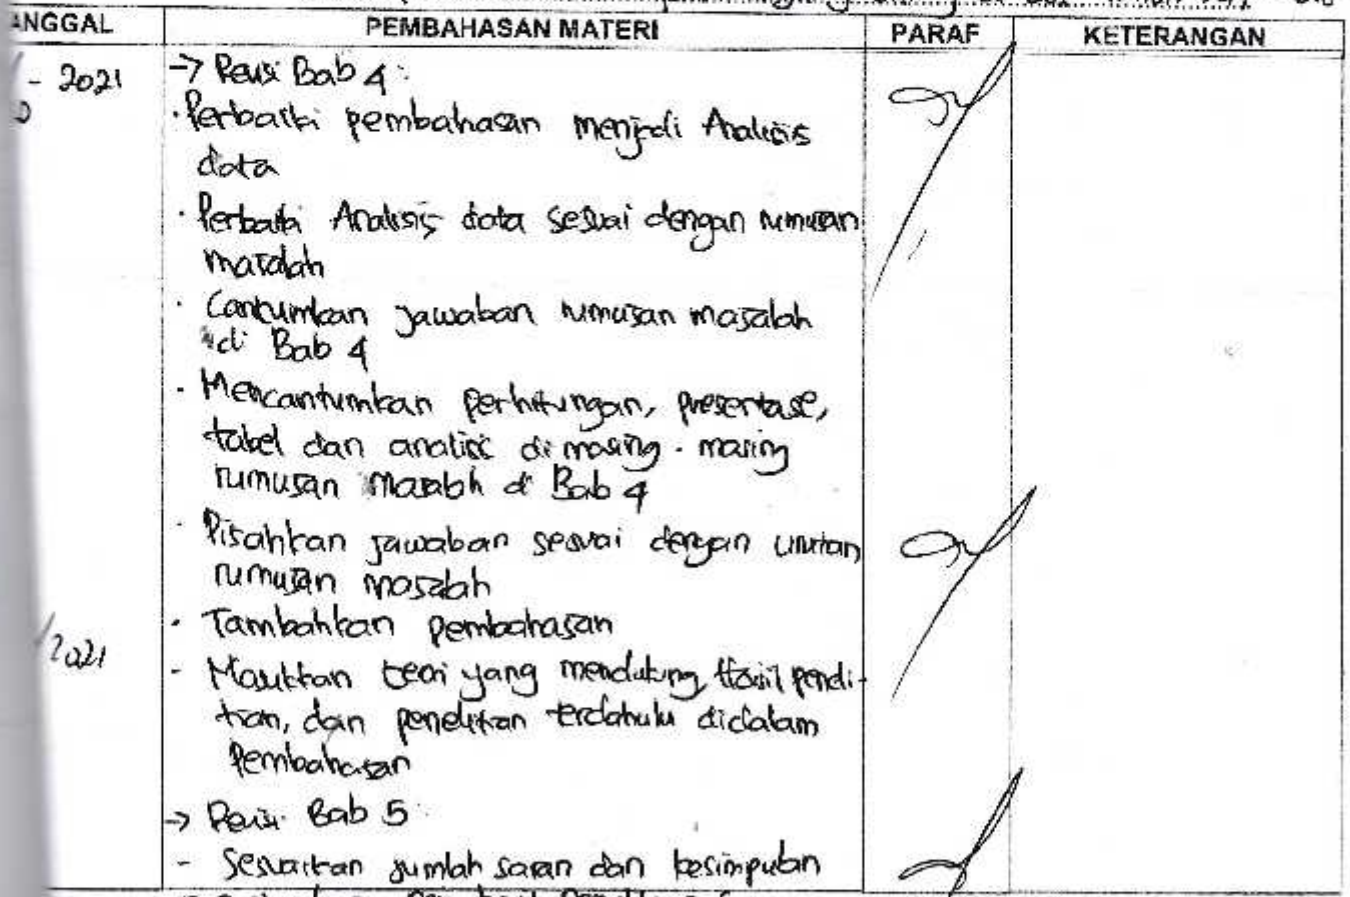 ANGGAL PEMBAHASAN MATERI PARAF KETERANGAN
- 2021 → Revisi Bab 4 :
· Perbaiki pembahasan menjadi Analisis
data
· Perbaiki Analisis data sesuai dengan rumusan
masalah
· Cantumkan jawaban rumusan masalah
di Bab 4
· Mencantumkan perhitungan, presentase,
tabel dan analisis di masing - masing
rumusan masalah di Bab 4
· Pisahkan jawaban sesuai dengan urutan
rumusan masalah
· Tambahkan pembahasan
/2021
- Masukkan teori yang mendukung, Hasil peneli-
tian, dan penelitian terdahulu didalam
pembahasan
→ Revisi Bab 5 :
- Sesuaikan jumlah saran dan kesimpulan